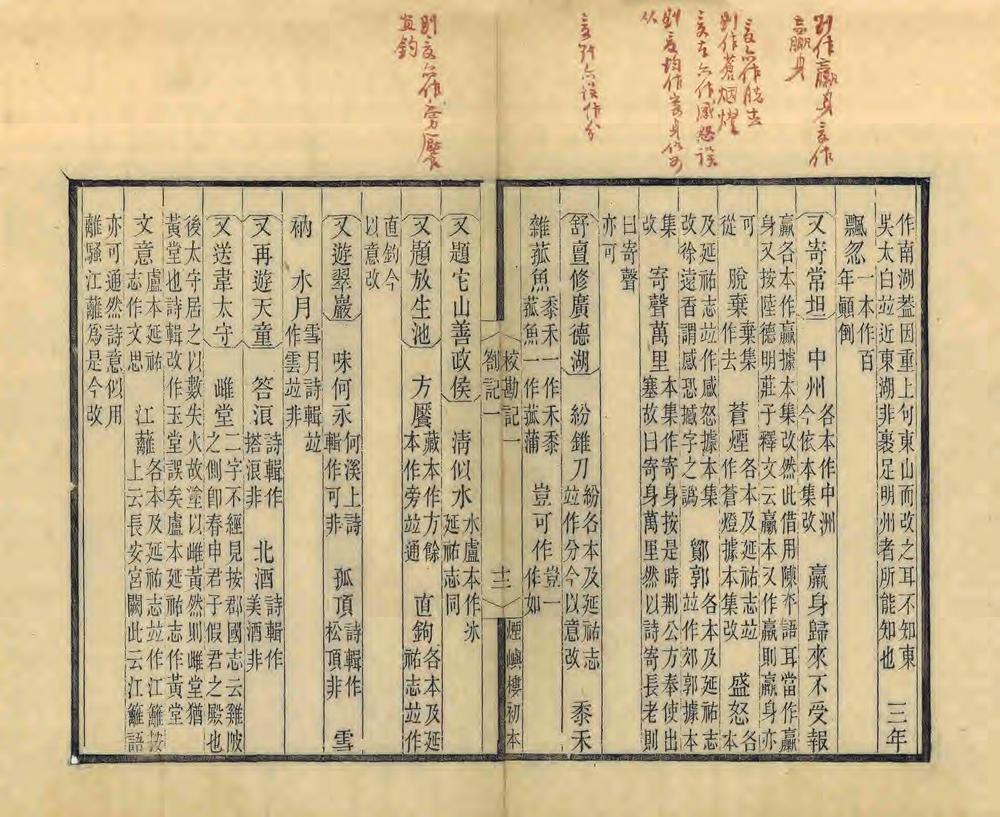 作南湖葢因重上句東山而改之耳不知東
吳太白竝近東湖非裹足明州者所能知也 三年
飄忽一本作百年顚倒
又寄常坦 中州各本作中洲今依本集改 羸身歸來不受報
羸各本作贏據本集改然此借用陳平語耳當作贏
身又按陸德明莊子釋文云羸本又作贏則羸身亦
可 脫棄棄集作去 蒼煙各本及延祐志竝作蒼燈據本集改 盛怒各本
從及延祐志竝作感怒據本集
改徐遠香謂感恐撼字之譌 鄮郭各本及延祐志竝作郊郭據本
集改 寄聲萬里本集作寄身按是時荆公方奉使出塞故曰寄身萬里然以詩寄長老則
曰寄聲
亦可
舒亶修廣德湖 紛錐刀紛各本及延祐志竝作分今以意改 黍禾
黍禾一作禾黍 雜菰魚菰魚一作菰蒲 豈可作豈一作如
校勘記一
劄記一
十二
煙嶼樓初本
又題它山善政侯 淸似水水盧本作氷延祐志同
又題放生池 方餍藏本作方餘本作旁竝通 直鉤各本及延祐志竝作
直鈞今
以意改
又遊翠巖 味何永何溪上詩輯作可非 孤頂詩輯作松頂非 雪
衲 水月雪月詩輯竝作雲竝非
又再遊天童 答浪詩輯作搭浪非 北酒詩輯作美酒非
又送韋太守 雌堂二字不經見按郡國志云雞陂之側卽春申君子假君之殿也
後太守居之以數失火故塗以雌黃然則雌堂猶
黃堂也詩輯改作玉堂誤矣盧本延祐志作黃堂
文意盧本延祐志作文思 江蘺各本及延祐志竝作江籬按上云長安宮闕此云江籬語
亦可通然詩意似用
離騷江蘺爲是今改